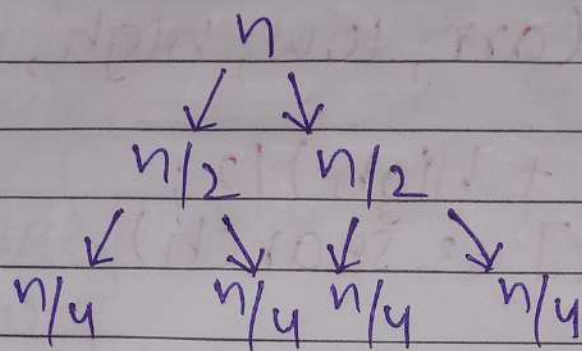 n
n/2 n/2
n/4 n/4 n/4 n/4